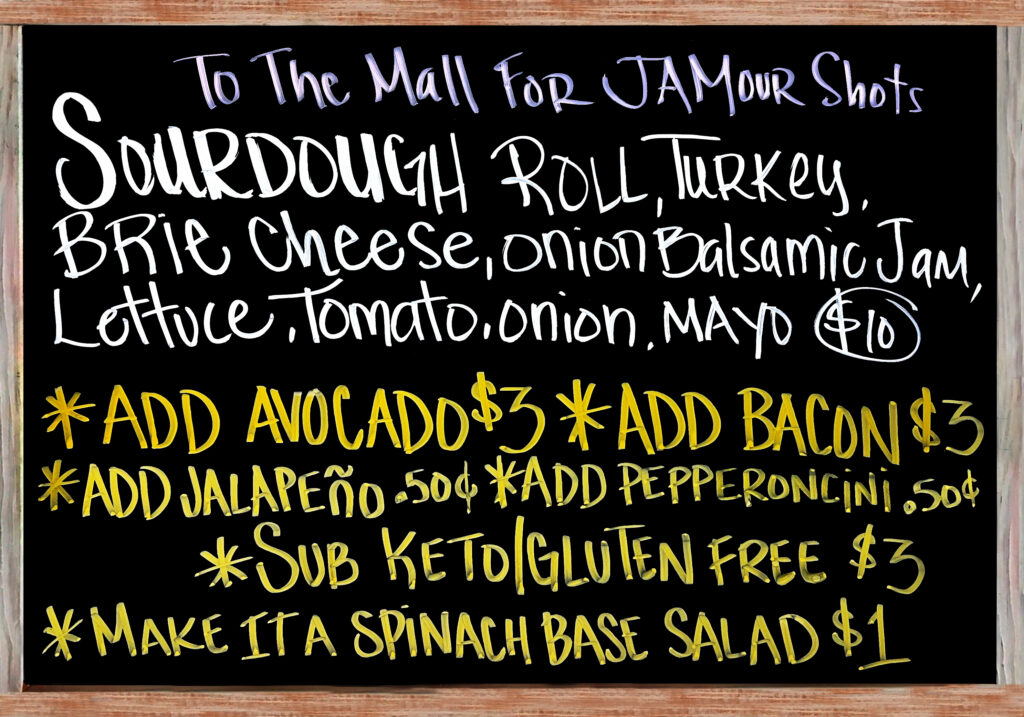 To The Mall For JAMour Shots
SOURDOUGH ROLL, TURKEY,
BRIE CHEESE, ONION Balsamic JAM,
Lettuce, Tomato, ONION, MAYO $10
*ADD AVOCADO $3 *ADD BACON $3
*ADD JALAPEÑO .50¢ *ADD PEPPERONCINI .50¢
*SUB KETO/GLUTEN FREE $3
*MAKE IT A SPINACH BASE SALAD $1